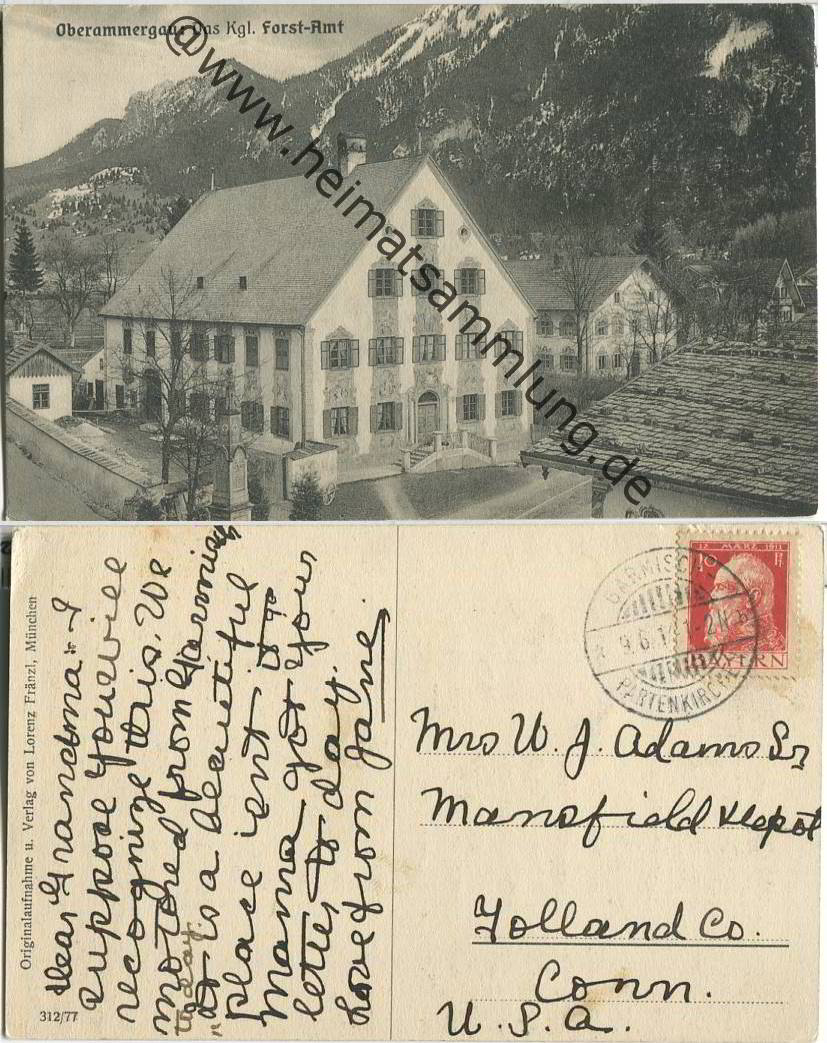 Oberammergau, Das Kgl. Forst-Amt
@www.heimatsammlung.de
Originalaufnahme u. Verlag von Lorenz Fränzl, München
312/77
Dear Grandma:- I
suppose you will
recognize this. We
motored from Garmisch
to day.
It is a beautiful
place isn't it?
Mama got your
letter to day.
Love from Jane.
12 MÄRZ 1911
10 Pf
BAYERN
GARMISCH
PARTENKIRCHEN
Mrs W. J. Adams Sr
Mansfield Depot
Tolland Co.
Conn.
U. S. A.